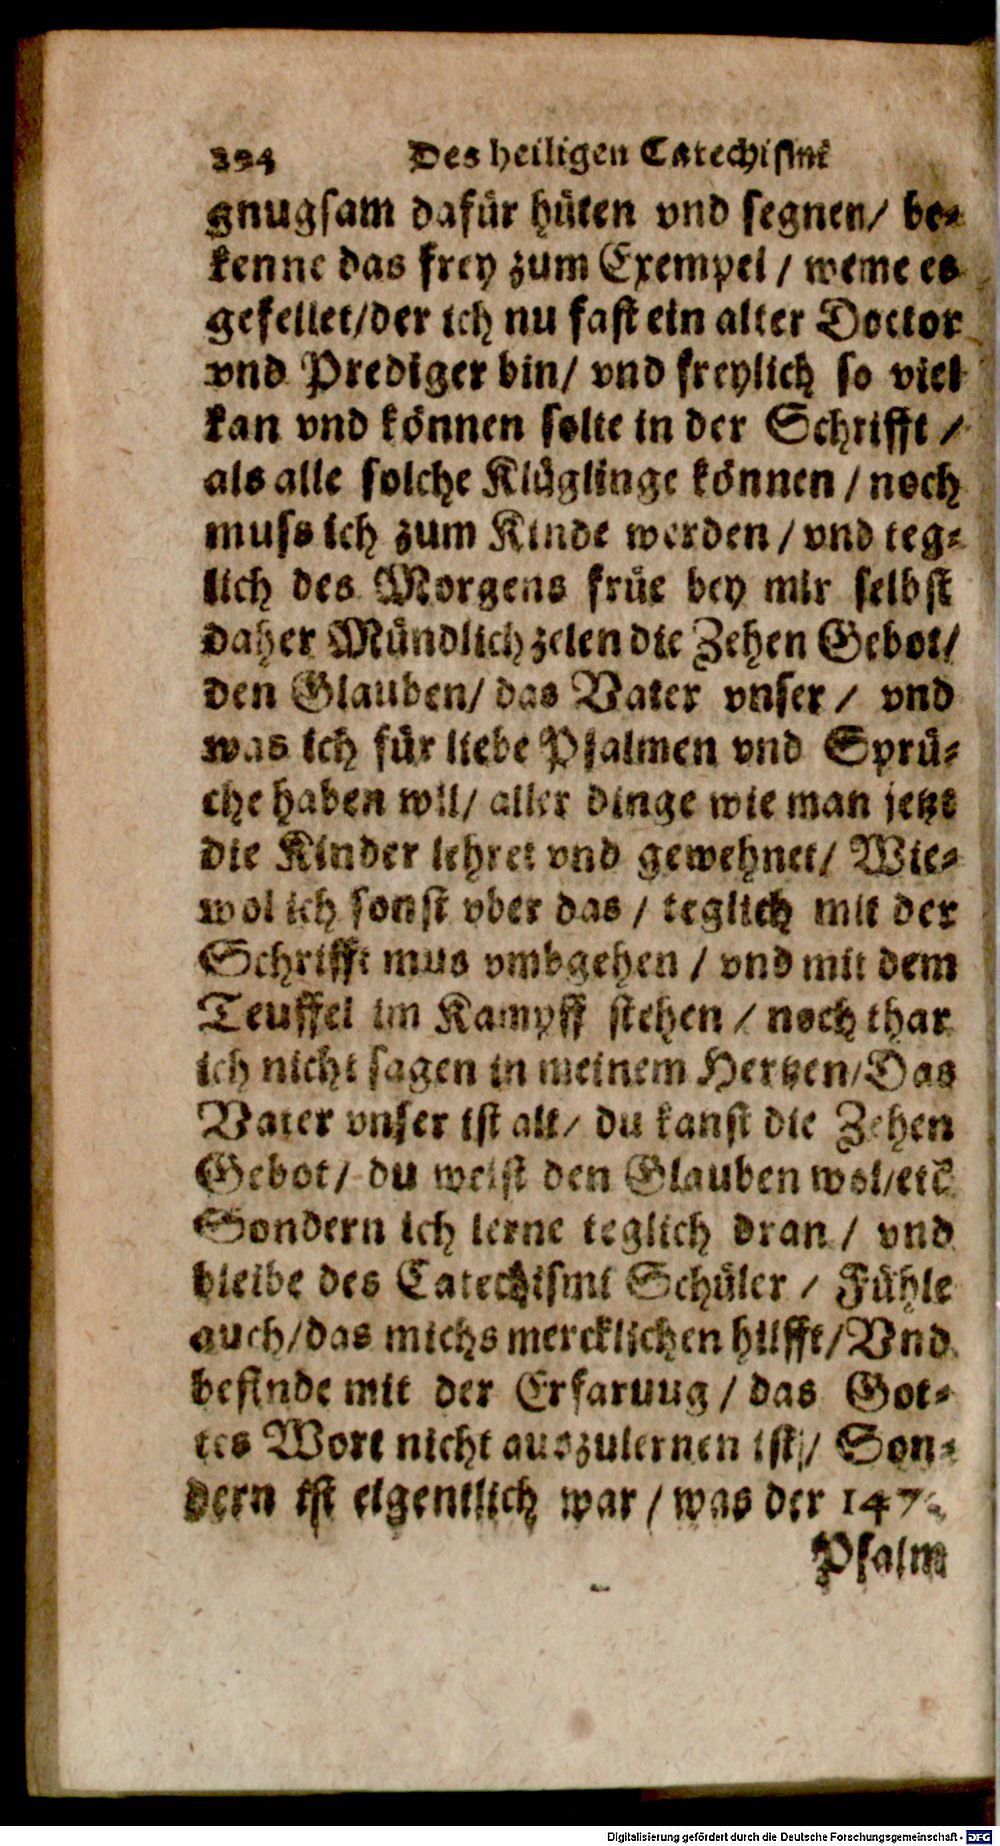 394 Des heiligen Catechismi
gnugsam dafür hüten vnd segnen/ be-
kenne das frey zum Exempel / weme es
gefellet/der ich nu fast ein alter Doctor
vnd Prediger bin/ vnd freylich so viel
kan vnd können solte in der Schrifft /
als alle solche Klüglinge können / noch
muss ich zum Kinde werden / vnd teg-
lich des Morgens früe bey mir selbst
daher Mündlich zelen die Zehen Gebot/
den Glauben/ das Vater vnser / vnd
was ich für liebe Psalmen vnd Sprü-
che haben wil/ aller dinge wie man jetzt
die Kinder lehret vnd gewehnet/ Wie-
wol ich sonst vber das / teglich mit der
Schrifft mus vmbgehen / vnd mit dem
Teuffel im Kampff stehen / noch thar
ich nicht sagen in meinem Hertzen/Das
Vater vnser ist alt/ du kanst die Zehen
Gebot/ du weist den Glauben wol/etc
Sondern ich lerne teglich dran / vnd
bleibe des Catechismi Schüler / Fühle
auch/das michs mercklichen hilfft/Vnd
befinde mit der Erfaruug / das Got-
tes Wort nicht auszulernen ist/ Son-
dern ist eigentlich war / was der 147.
Psalm
Digitalisierung gefördert durch die Deutsche Forschungsgemeinschaft - DFG